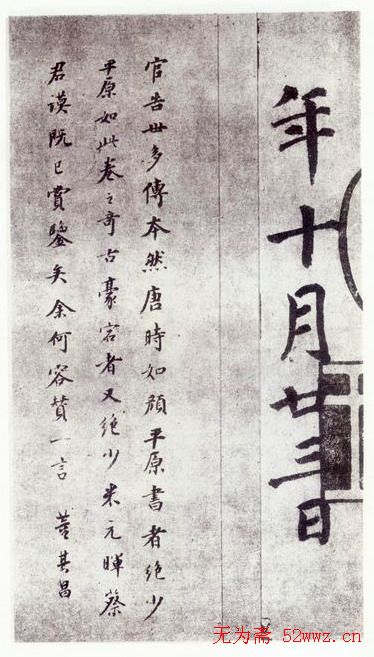 年十月廿三日
官告世多傳本然唐時如顏平原書者絶少
平原如此卷之奇古豪宕者又絶少米元暉蔡
君謨既已賞鑒矣余何容贊一言 董其昌
无为斋 52wwz.cn